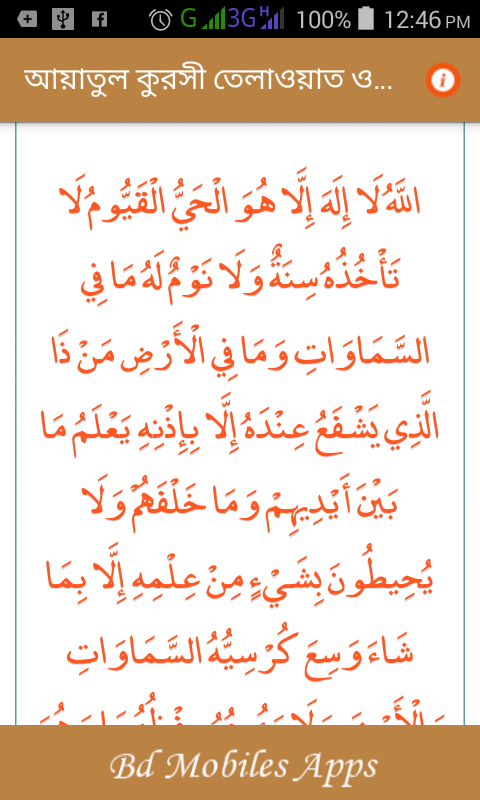 G 3G H 100% 12:46 PM
আয়াতুল কুরসী তেলাওয়াত ও...
اللَّهُ لَا إِلَهَ إِلَّا هُوَ الْحَيُّ الْقَيُّومُ لَا
تَأْخُذُهُ سِنَةٌ وَلَا نَوْمٌ لَهُ مَا فِي
السَّمَاوَاتِ وَمَا فِي الْأَرْضِ مَنْ ذَا
الَّذِي يَشْفَعُ عِنْدَهُ إِلَّا بِإِذْنِهِ يَعْلَمُ مَا
بَيْنَ أَيْدِيهِمْ وَمَا خَلْفَهُمْ وَلَا
يُحِيطُونَ بِشَيْءٍ مِنْ عِلْمِهِ إِلَّا بِمَا
شَاءَ وَسِعَ كُرْسِيُّهُ السَّمَاوَاتِ
Bd Mobiles Apps